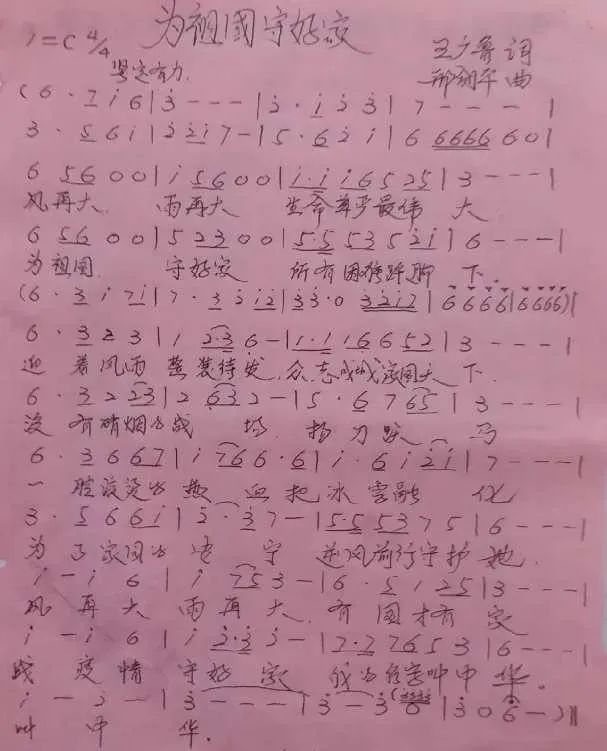 为祖國守好家
1=C 4/4
王广鲁 词
坚定有力
邢朝平 曲
(6 · 7 i 6 | 3 - - - | 2 · i 2 3 | 7 - - - |
3 · 5 6 i | 2 2 i 7 - | 5 · 6 2 i | 6 6666 6 0 |
6 5 6 0 0 | i 5 6 0 0 | i · i i 6 5 2 5 | 3 - - - |
风再大 雨再大 生命尊严最伟 大
6 5 6 0 0 | 5 2 3 0 0 | 5 · 5 5 3 5 2 i | 6 - - - |
为祖国 守好家 所有困难踩脚 下.
(6 · 3 i 7 i | 7 · 3 2 i 2 | 3 3 · 0 3 2 i 7 | 6 6 6 6 | 6666) |
6 · 3 2 3 | 1 2 · 3 6 - | 1 · 1 1 6 6 5 2 | 3 - - - |
迎 着风雨 整装待发 众志成城 天 下.
6 · 3 2 2 3 | 2 6 3 2 - | 5 · 6 7 6 5 | 3 - - - |
没 有硝烟的战 场 扬刀跃 马
6 · 3 6 6 7 | i 7 6 6 · 6 | i · 6 i 2 i | 7 - - - |
一 腔滚烫的 热 血把冰雪融 化
3 · 5 6 6 i | 2 · 3 7 - | 5 · 5 5 3 7 5 | 6 - - - |
为 了家国的 安 宁 逆风前行守护 她.
i - i 6 | i 7 5 3 - | 6 · 5 1 2 5 | 3 - - - |
风 再大 雨再大. 有 国才有 家
i - i 6 | i 3 · 3 3 - | 7 · 7 7 6 5 3 | 6 - - - |
战 疫情 守好 家 我的名字叫中 华.
i - 2 - | 3 - - - | 3 - 3 6 | 3 0 6 - ) ‖
叫 中 华.